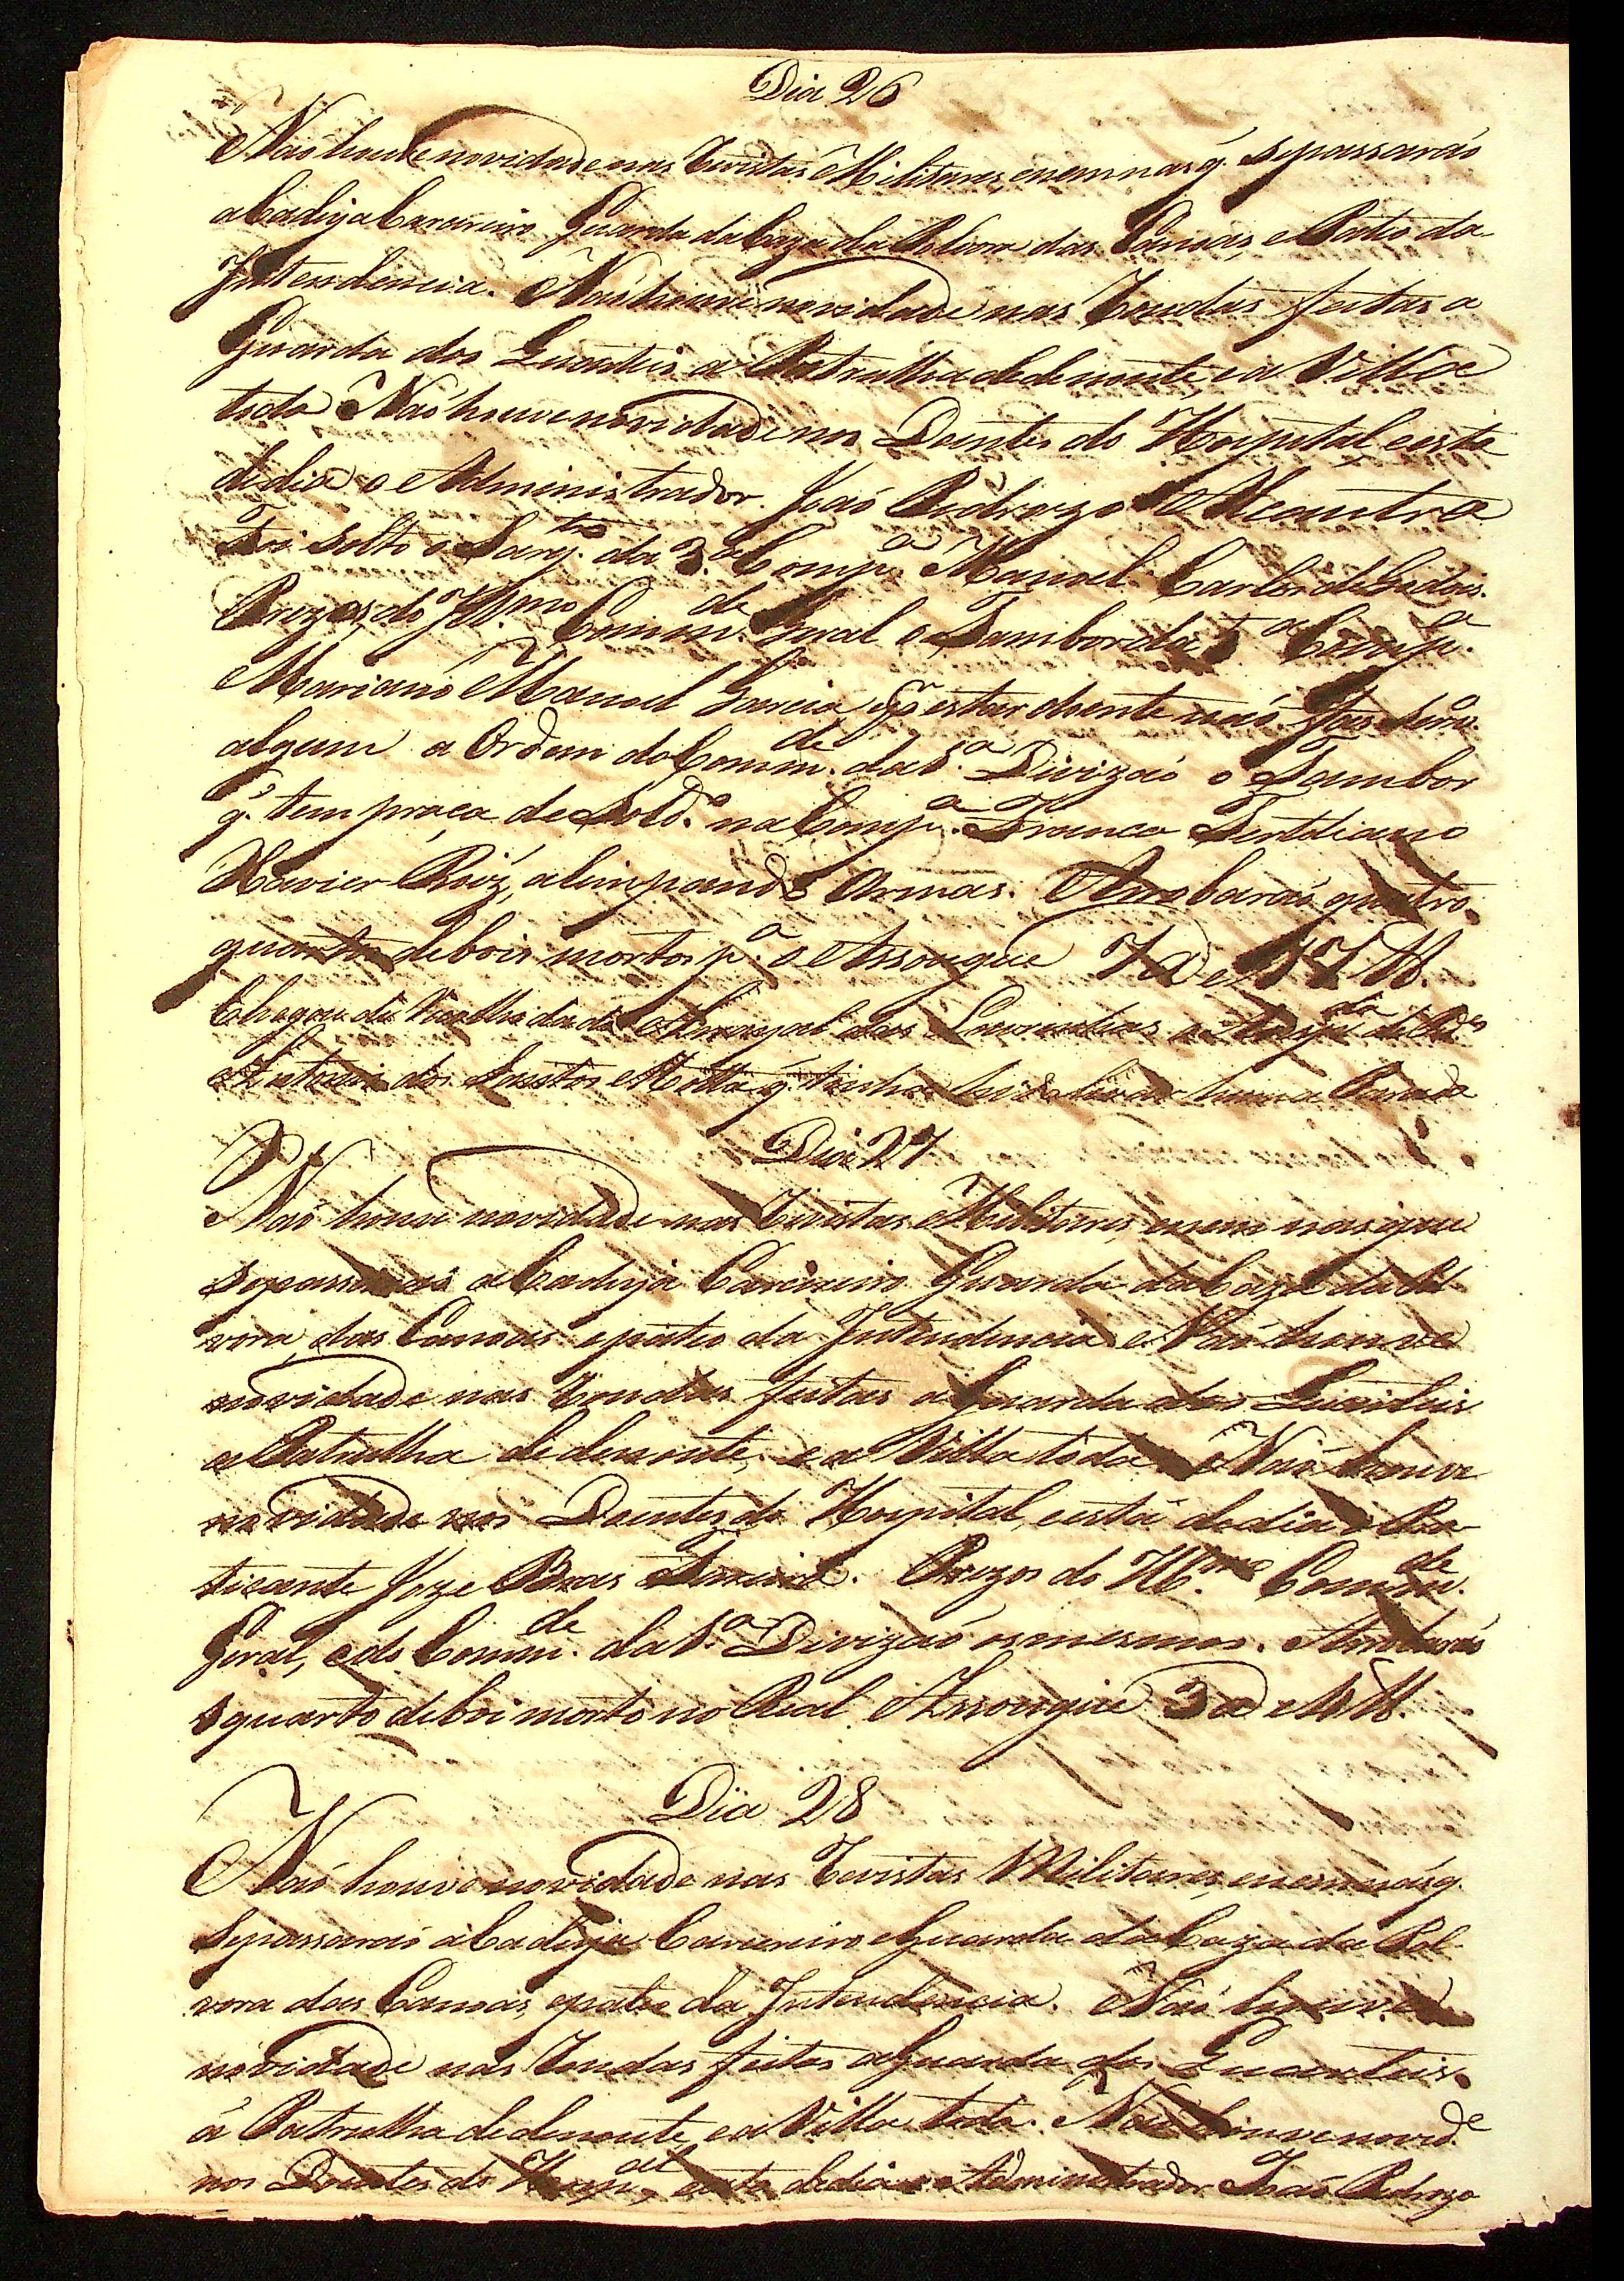 Dia 26
Naõ houve novidade nas Revistas Militares, e nem nas q̃. se passaraõ
a Cadeya Carcereiro Guarda da Caza da Polvora das Canoas, e Patio da
Intendencia. Naõ houve novidade nas Rondas feitas a
Guarda dos Quarteis a Patrulha de de noute, e a Villa
toda Naõ houve novidade nos Doentes do Hospital, e esta
de dia o Administrador Joaõ Pedrozo Alcantra
Foi solto o Sarg.to da 3.a Comp.a Manoel Carlos
Prezos, do Ill.mo Comm.de Geral o Tambor da Comp.a
Mariano Manoel Garcia estar doente naõ
algum a Ordem do Comm.de da 1.a Divizaõ o Tambor
q̃. tem praça de Sold.o na Comp.a Franca
Xavier Roiz, alimpando Armas. Arrobaraõ quatro
quartos de bois mortos p.a o Assougue
Chegou da do Arrayal dos
Antonio dos Santos q̃. tinha hido levar huma Parada
Dia 27
Naõ houve novidade nas Revistas Militares, e nem nas que
se passaraõ a Cadeya Carcereiro Guarda da Caza da Pol
vora, das Canoas e patio da Intendencia. Naõ houve
novidade nas Rondas feitas a Guarda dos Quarteis
a Patrulha de de noute, e a Villa toda Naõ houve
novidade nos Doentes do Hospital, e está de dia o Pra
ticante Joze Bras. Prezos do Ill.mo Comm.de
Geral, e do Comm.de da 1.a Divizaõ os mesmos. Arrobaraõ
quarto de boi morto no Real Assougue
Dia 28
Naõ houve novidade nas Revistas Militares, e nem nas q̃.
se passaraõ a Cadeya Carcereiro e Guarda da Caza da Pol
vora das Canoas, e patio da Intendencia. Naõ houve
novidade nas Rondas feitas a Guarda dos Quarteis.
á Patrulha de de noute, e a Villa toda. Naõ houve novid.de
nos Doentes do Hospi.al, e esta de dia o Administrador Joaõ Pedrozo